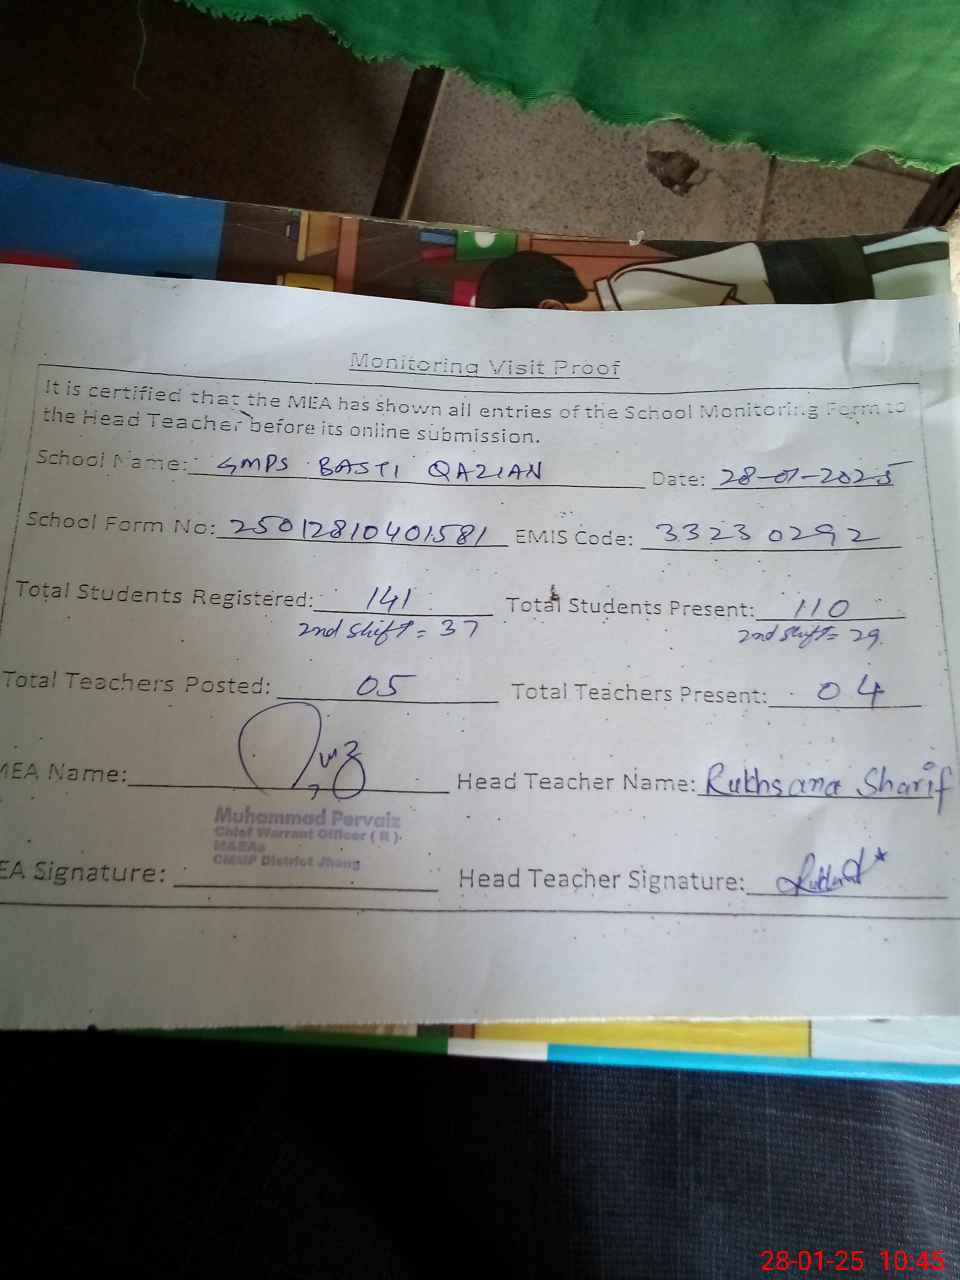 Monitoring Visit Proof
It is certified that the MEA has shown all entries of the School Monitoring Form to
the Head Teacher before its online submission.
School Name: GMPS BASTI QAZIAN Date: 28-01-2025
School Form No: 25012810401581 EMIS Code: 33230292
Total Students Registered: 141 Total Students Present: 110
2nd Shift = 37 2nd Shift = 29
Total Teachers Posted: 05 Total Teachers Present: 04
MEA Name: Head Teacher Name: Rukhsana Sharif
Muhammad Pervaiz
Chief Warrant Officer ( R )
District Jhang
EA Signature: Head Teacher Signature:
28-01-25 10:45